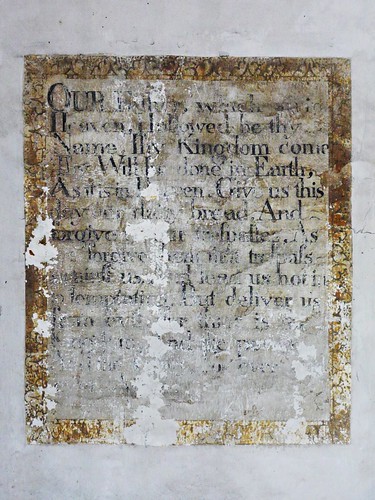 OUR which art in
Heaven, Hallowed be thy
Name, Thy Kingdom come
Thy Will be done in Earth,
As it is in Heaven. Give us this
day our daily bread. And
forgive us our trespasses, As
we forgive them that trespass
against us. And lead us not in
to temptation, But deliver us
from evil: For thine is
Kingdom and the power